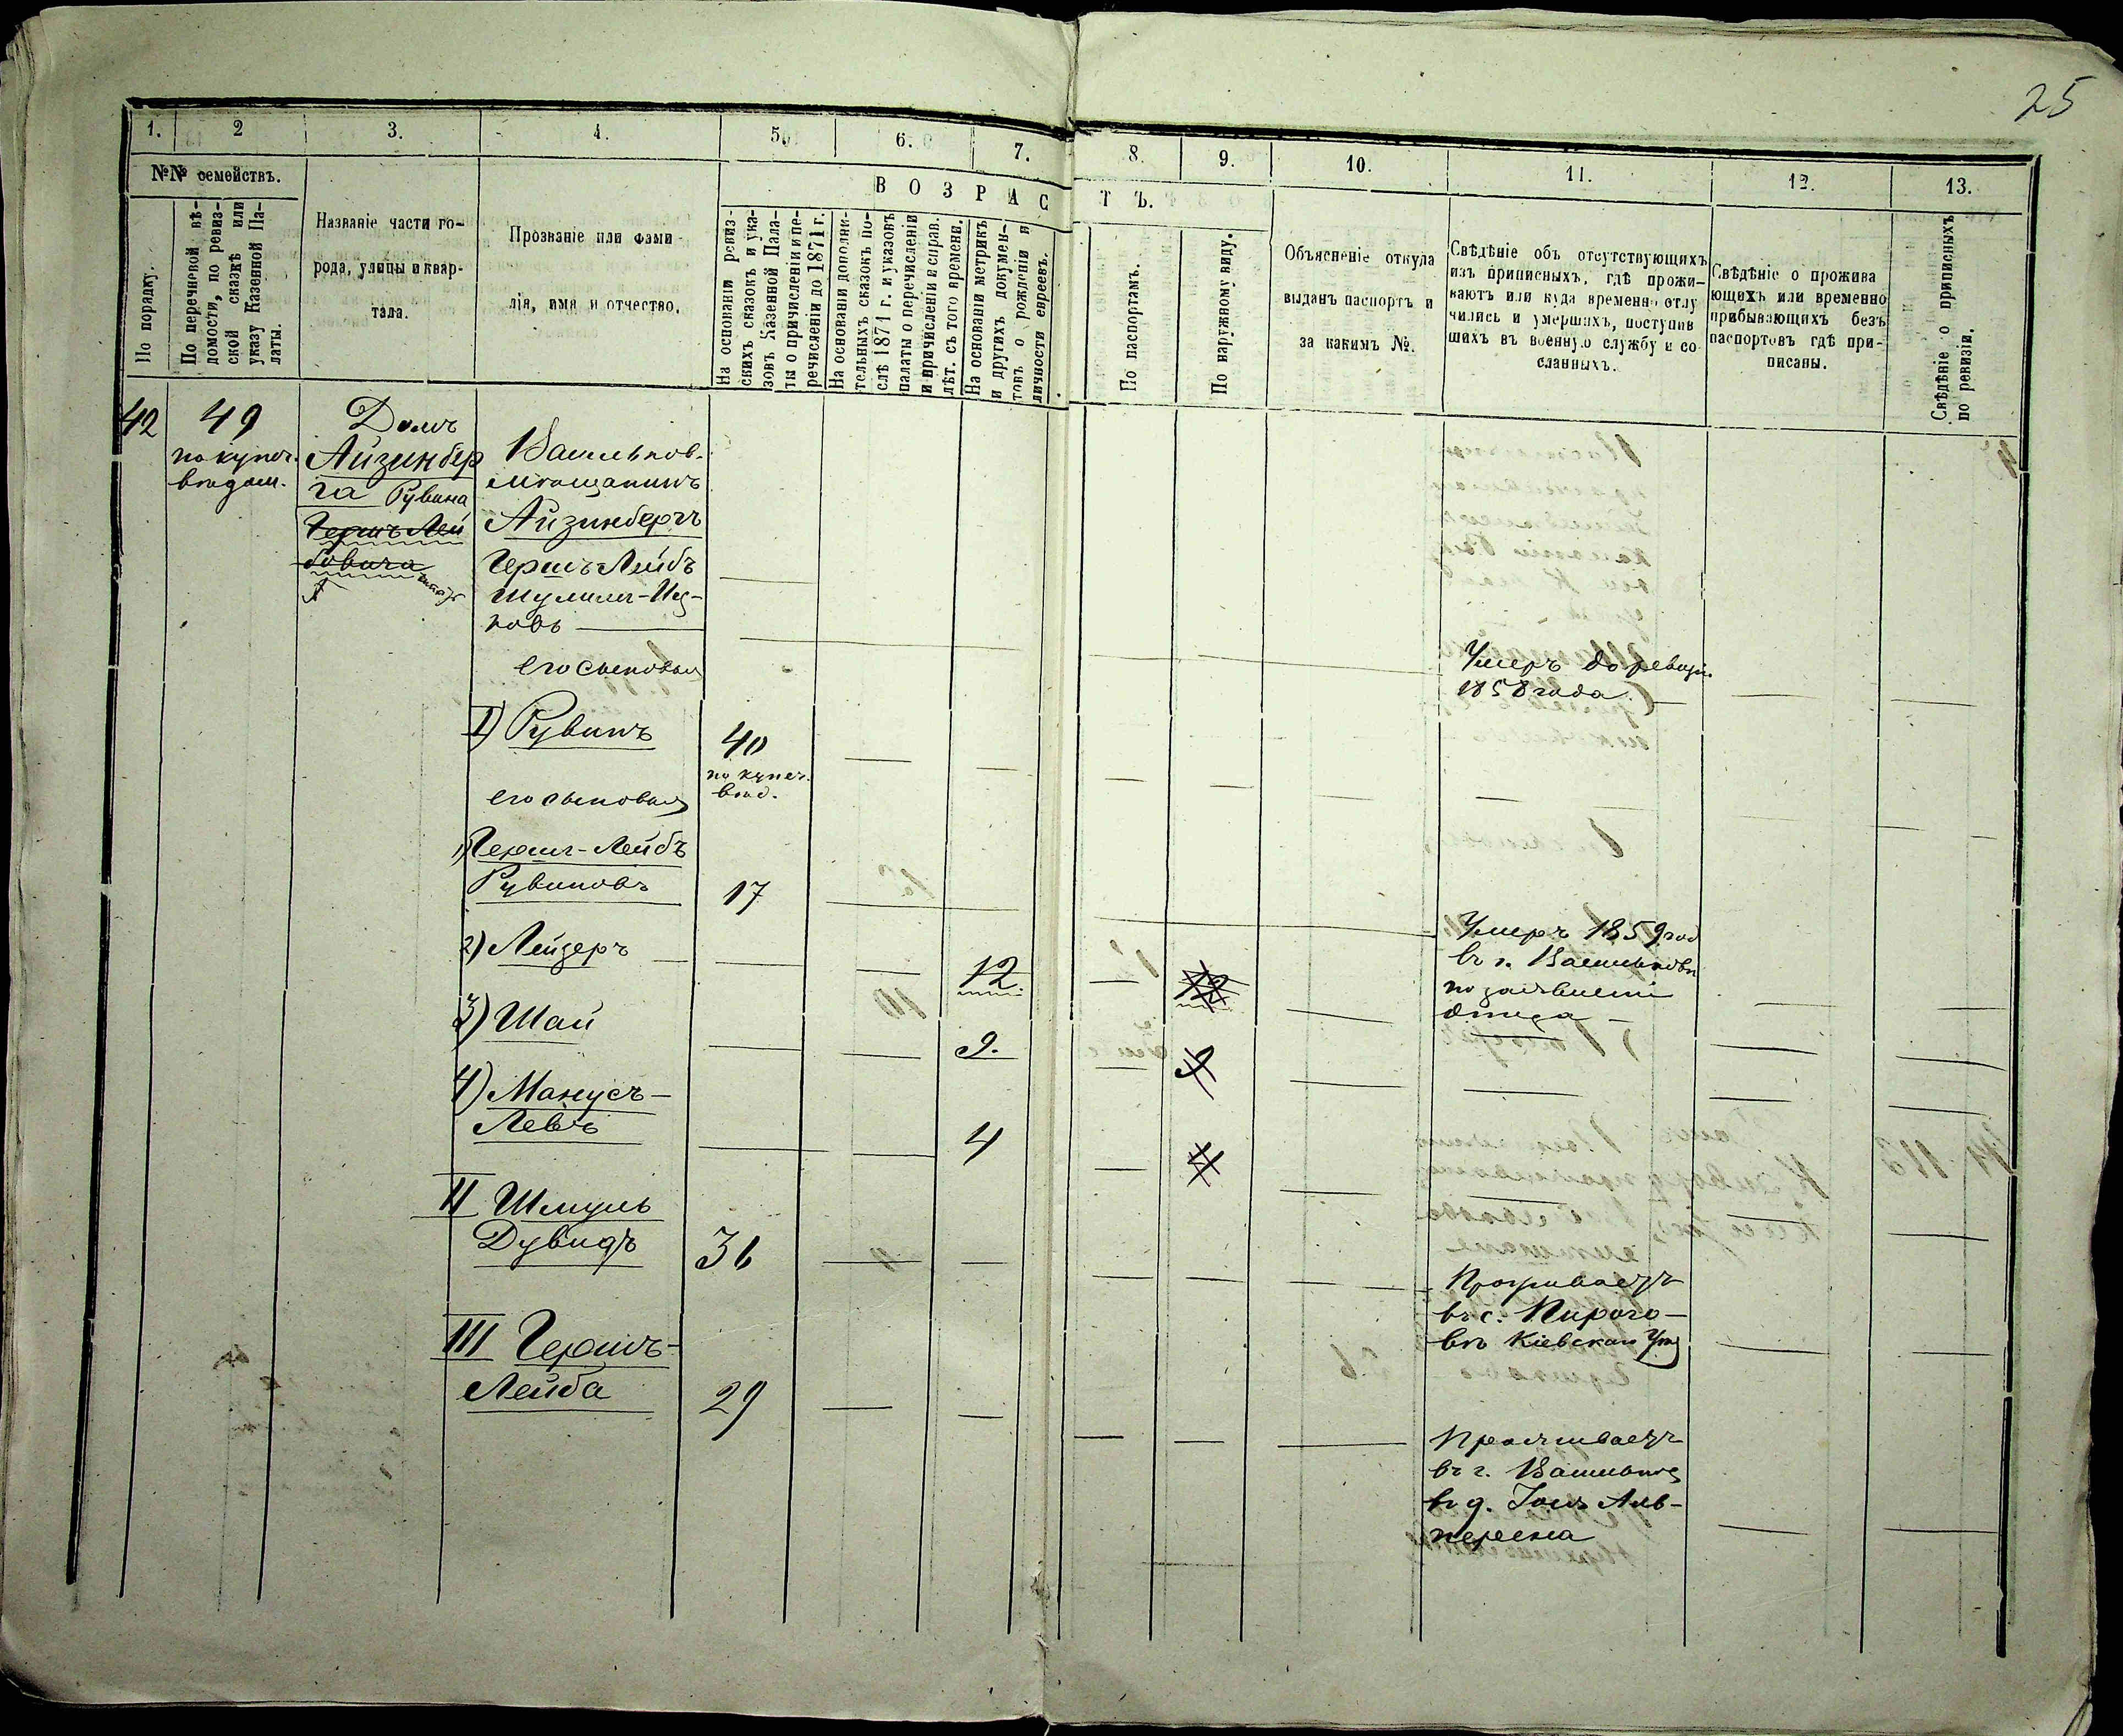 25
1. 2 3. 4. 5. 6. 7. 8. 9. 10. 11. 12. 13.
№№ семействъ.
По порядку.
По перечневой вѣ-
домости, по ревиз-
ской сказкѣ или
указу Казенной Па-
латы.
Названіе части го-
рода, улицы и квар-
тала.
Прозваніе или фами-
лія, имя и отчество.
ВОЗРАСТЪ.
На основаніи ревиз-
скихъ сказокъ и ука-
зовъ Казенной Пала-
ты о причисленіи и пе-
речисленіи до 1871 г.
На основаніи дополни-
тельныхъ сказокъ по-
слѣ 1871 г. и указовъ
палаты о перечисленіи
и причисленіи и справ.
лѣт. съ того времени.
На основаніи метрикъ
и другихъ докумен-
товъ о рожденіи и
личности евреевъ.
По паспортамъ.
По наружному виду.
Объясненіе откуда
выданъ паспортъ и
за какимъ №.
Свѣдѣніе объ отсутствующихъ
изъ приписныхъ, гдѣ прожи-
ваютъ или куда временно отлу
чились и умершихъ, поступив
шихъ въ военную службу и со
сланныхъ.
Свѣдѣніе о прожива
ющихъ или временно
прибывающихъ безъ
паспортовъ гдѣ при-
писаны.
Свѣдѣніе о приписныхъ
по ревизіи.
42
49
по купеч.
Домъ
Айзинбер
га Рувина
Гершъ Лей
бовича
Васильков.
мѣщанинъ
Айзинбергъ
Гершъ Лейбъ
Шулим-Иц-
ковъ
его сыновья
Умеръ до ревизіи
1858 года
I) Рувинъ
40
по купеч.
его сыновья
1) Герш-Лейбъ
Рувиновъ
17
Умеръ 1859 год
въ г. Васильковѣ
по заявленію
отца
2) Лейзеръ
12
12
3) Шай
9.
9
4) Манусъ-
Левъ
4
4
II Шмуль
Дувидъ
36
Проживаетъ
въ с. Пирого-
вѣ Кіевскаго
III Гершъ-
Лейба
29
Проживаетъ
въ г. Василько
въ д. Аль-
перена